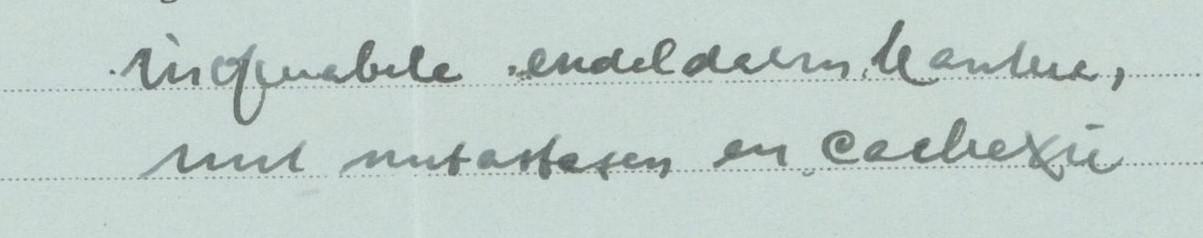 inoperabele endeldarm kanker,
met metastasen en cachexie